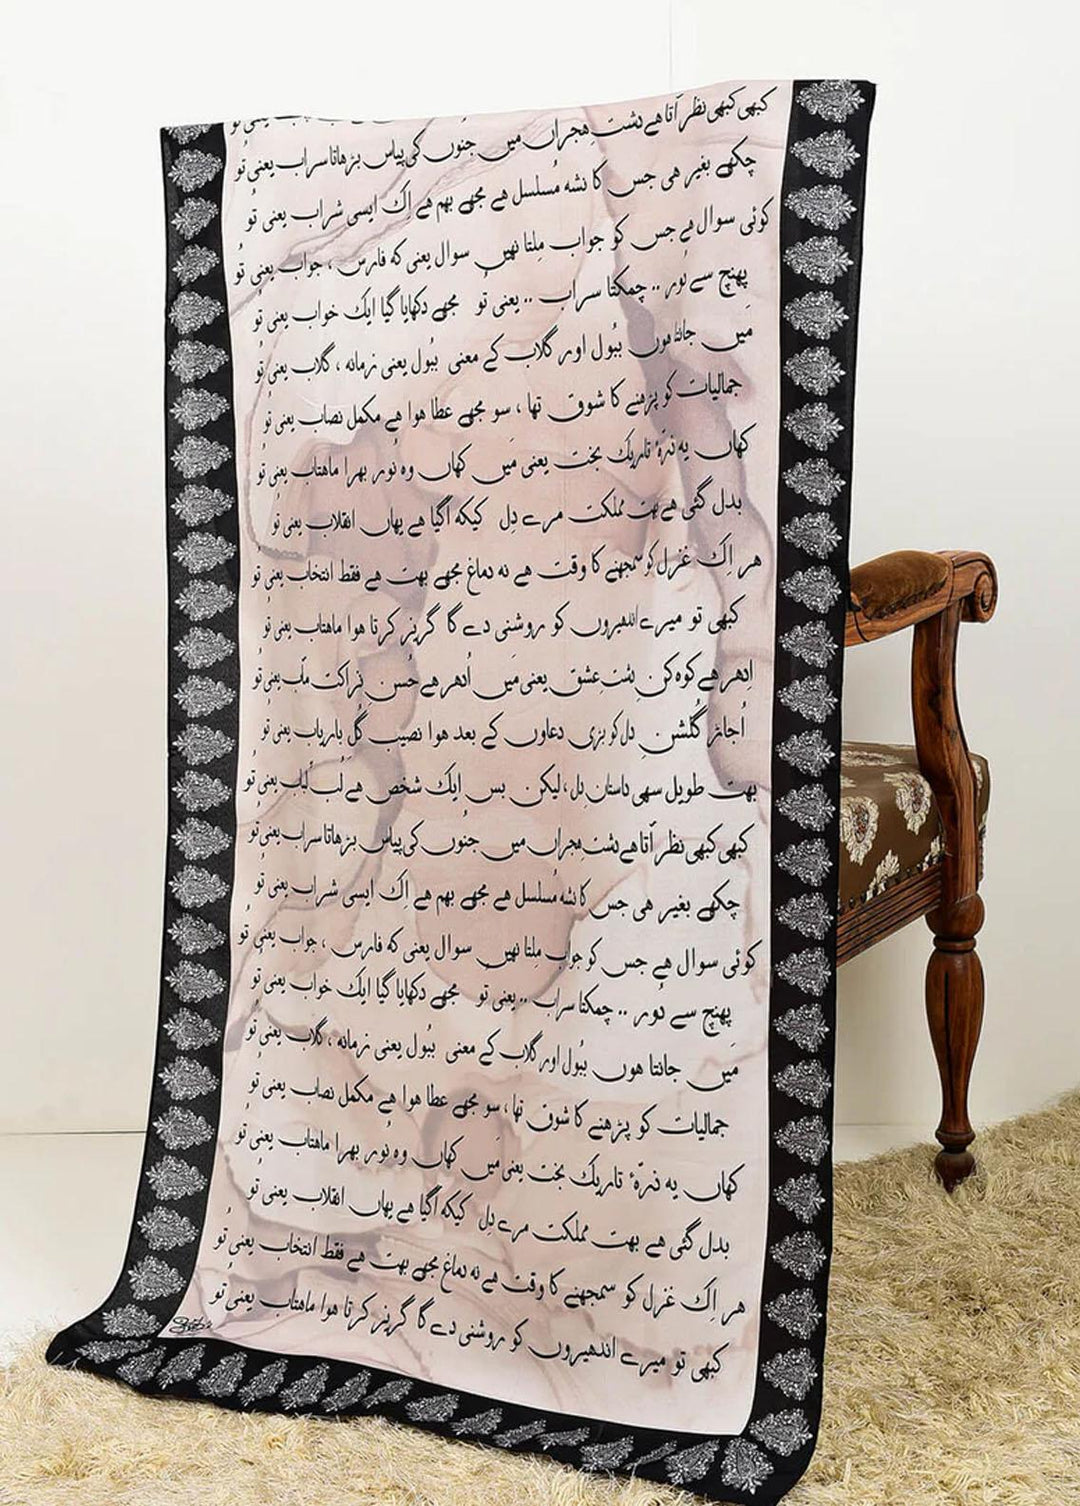 یعنی تُو
کبھی کبھی نظر آتا ہے دشتِ ہجراں میں جنُوں کی پیاس بڑھاتا سراب یعنی تُو
چکھے بغیر ہی جس کا نشہ مُسلسل ہے مجھے بہم ہے اِک ایسی شراب یعنی تُو
کوئی سوال ہے جس کو جواب مِلتا نہیں سوال یعنی کہ فارس ، جواب یعنی تُو
پہنچ سے دُور .. چمکتا سراب .. یعنی تُو مجھے دکھایا گیا ایک خواب یعنی تُو
مَیں جانتا ہوں ببُول اور گلاب کے معنی ببُول یعنی زمانہ ، گلاب یعنی تُو
جمالیات کو پڑھنے کا شوق تھا ، سو مجھے عطا ہوا ہے مکمل نصاب یعنی تُو
کہاں یہ ذرّہٗ تاریک بخت یعنی مَیں کہاں وہ نُور بھرا ماہتاب یعنی تُو
بدل گئی ہے بہت مملکت مرے دِل کی کہ آگیا ہے یہاں انقلاب یعنی تُو
ہر اِک غزل کو سمجھنے کا وقت ہے نہ دماغ مجھے بہت ہے فقط انتخاب یعنی تُو
کبھی تو میرے اندھیروں کو روشنی دے گا گریز کرتا ہوا ماہتاب یعنی تُو
اِدھر ہے کوہ کنِ دشتِ عشق یعنی مَیں اُدھر ہے حُسنِ نزاکت مآب یعنی تُو
اُجاڑ گُلشنِ دِل کو بڑی دعاوں کے بعد ہوا نصیب گُلِ باریاب یعنی تُو
بہت طویل سہی داستانِ دِل ، لیکن بس ایک شخص ہے لُبِ لُباب یعنی تُو
کبھی کبھی نظر آتا ہے دشتِ ہجراں میں جنُوں کی پیاس بڑھاتا سراب یعنی تُو
چکھے بغیر ہی جس کا نشہ مُسلسل ہے مجھے بہم ہے اِک ایسی شراب یعنی تُو
کوئی سوال ہے جس کو جواب مِلتا نہیں سوال یعنی کہ فارس ، جواب یعنی تُو
پہنچ سے دُور .. چمکتا سراب .. یعنی تُو مجھے دکھایا گیا ایک خواب یعنی تُو
مَیں جانتا ہوں ببُول اور گلاب کے معنی ببُول یعنی زمانہ ، گلاب یعنی تُو
جمالیات کو پڑھنے کا شوق تھا ، سو مجھے عطا ہوا ہے مکمل نصاب یعنی تُو
کہاں یہ ذرّہٗ تاریک بخت یعنی مَیں کہاں وہ نُور بھرا ماہتاب یعنی تُو
بدل گئی ہے بہت مملکت مرے دِل کی کہ آگیا ہے یہاں انقلاب یعنی تُو
ہر اِک غزل کو سمجھنے کا وقت ہے نہ دماغ مجھے بہت ہے فقط انتخاب یعنی تُو
کبھی تو میرے اندھیروں کو روشنی دے گا گریز کرتا ہوا ماہتاب یعنی تُو